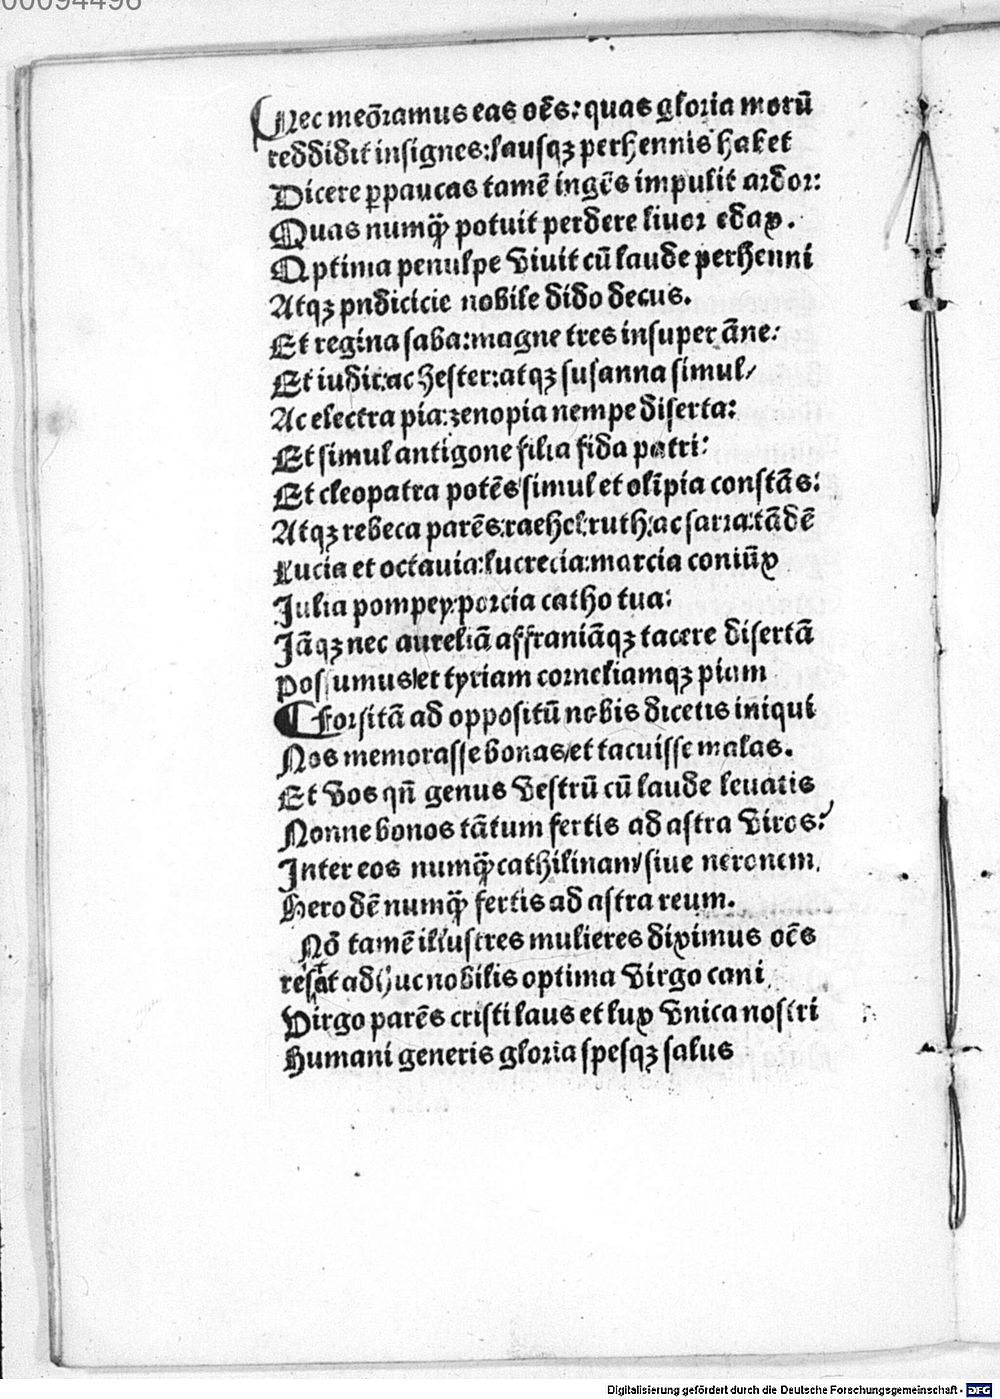 00094496
Nec meōramus eas oēs: quas gloria morū
reddidit insignes: lausqꝫ perhennis habet
Dicere ꝑpaucas tamē ingēs impulit ardor:
Quas numqͣꝫ potuit perdere liuor edax.
Optima penulpe viuit cū laude perhenni
Atqꝫ pudicicie nobile dido decus.
Et regina saba: magne tres insuper āne:
Et iudit: ac hester: atqꝫ susanna simul/
Ac electra pia: zenopia nempe diserta:
Et simul antigone filia fida patri:
Et cleopatra potēs simul et olīpia constās:
Atqꝫ rebeca parēs: rachel: ruth: ac sarra: tādē
Lucia et octauia: lucrecia: marcia coniūx
Julia pompey: porcia catho tua:
Jāqꝫ nec aureliā affraniāqꝫ tacere disertā
possumus/ et tyriam corneliamqꝫ piam
¶ Forsitā ad oppositū nobis dicetis iniqui
Nos memorasse bonas/ et tacuisse malas.
Et vos qn̄ genus vestrū cū laude leuatis
Nonne bonos tātum fertis ad astra viros:
Inter eos numqͣꝫ cathilinam/ siue neronem.
Herodē numqͣꝫ fertis ad astra reum.
Nō tamē illustres mulieres diximus oēs
restat adhuc nobilis optima virgo cani
Virgo parēs cristi laus et lux vnica nostri
Humani generis gloria spesqꝫ salus
Digitalisierung gefördert durch die Deutsche Forschungsgemeinschaft - DFG